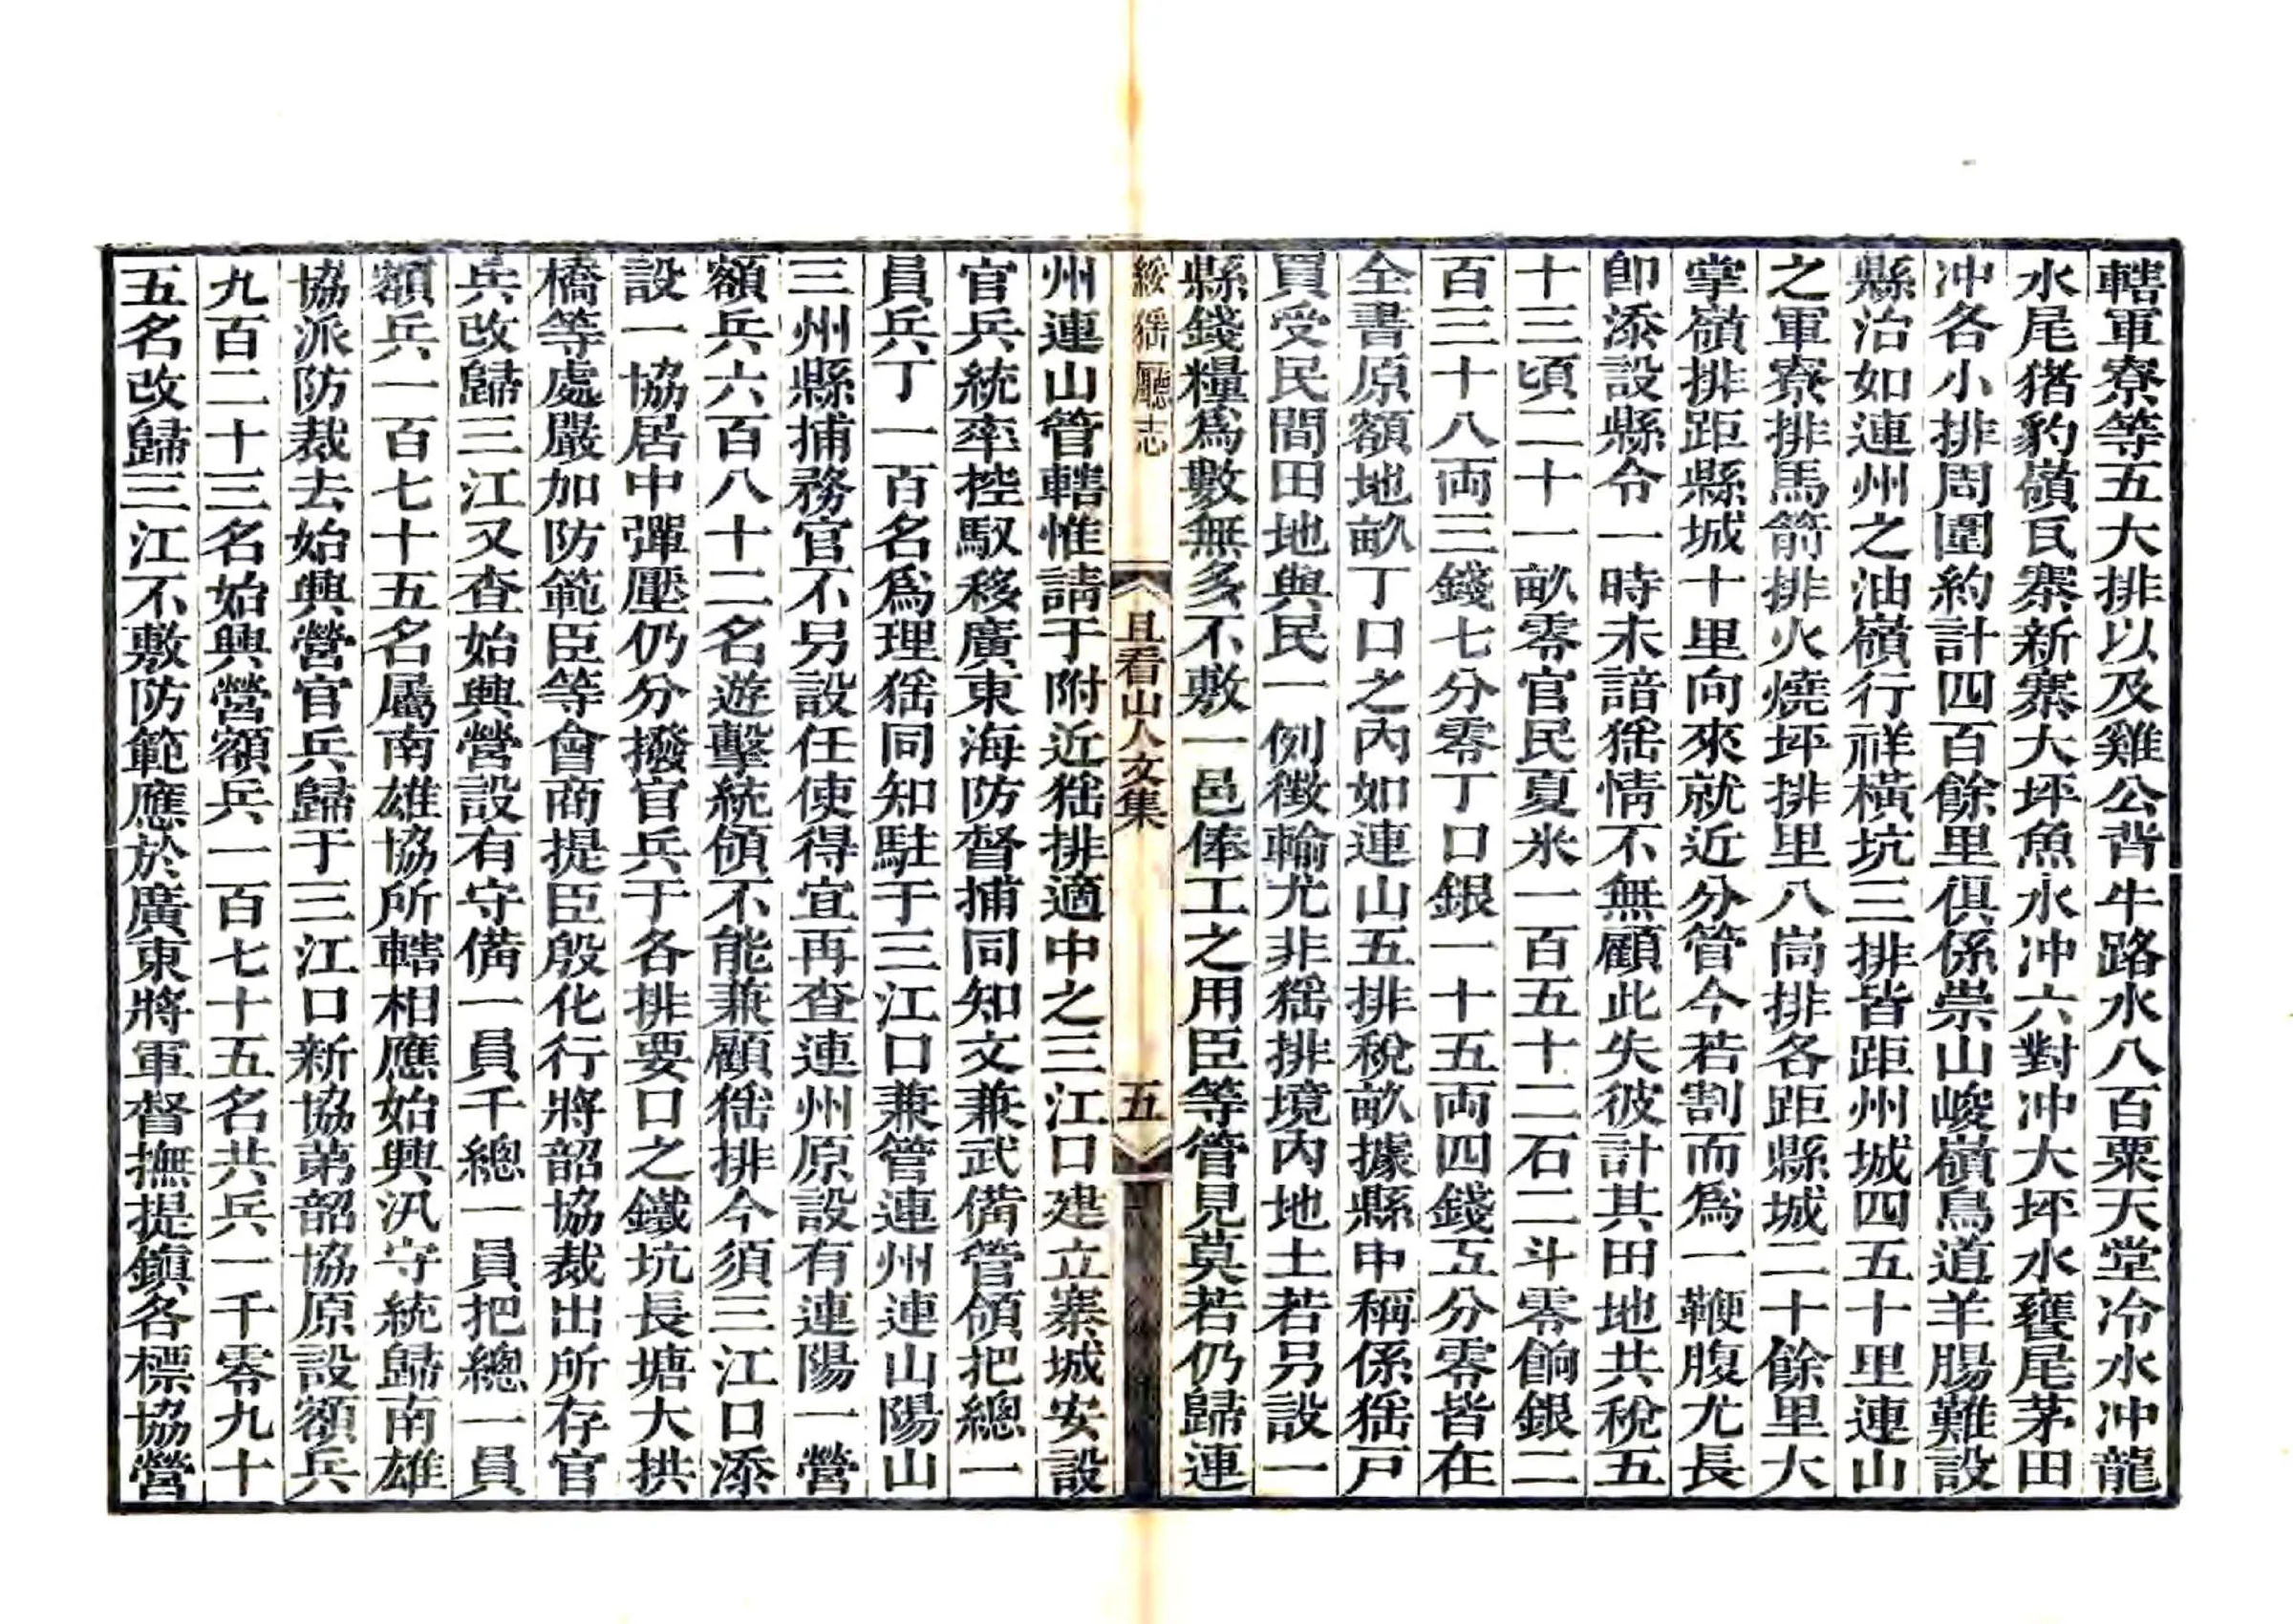 轄軍寮等五大排以及雞公背牛路水八百粟天堂冷水冲龍
水尾猪豹嶺瓦寨新寨大坪魚水冲六對冲大坪水甕尾茅田
冲各小排周圍約計四百餘里俱係崇山峻嶺鳥道羊腸難設
縣治如連州之油嶺行祥橫坑三排皆距州城四五十里連山
之軍寮排馬箭排火燒坪排里八峝排各距縣城二十餘里大
掌嶺排距縣城十里向來就近分管今若割而爲一鞭腹尤長
卽添設縣令一時未諳猺情不無顧此失彼計其田地共稅五
十三頃二十一畝零官民夏米一百五十二石二斗零餉銀二
百三十八両三錢七分零丁口銀一十五両四錢五分零皆在
全書原額地畝丁口之內如連山五排稅畝據縣申稱係猺戸
買受民間田地與民一例徵輸尤非猺排境内地土若另設一
縣錢糧爲數無多不敷一邑俸工之用臣等管見莫若仍歸連
綏猺廳志
且看山人文集
五
州連山管轄惟請于附近猺排適中之三江口建立寨城安設
官兵統率控馭移廣東海防督捕同知文兼武備管領把總一
員兵丁一百名爲理猺同知駐于三江口兼管連州連山陽山
三州縣捕務官不另設任使得宜再查連州原設有連陽一營
額兵六百八十二名遊擊統領不能兼顧猺排今須三江口添
設一協居中彈壓仍分撥官兵于各排要口之鐵坑長塘大拱
橋等處嚴加防範臣等會商提臣殷化行將韶協裁出所存官
兵改歸三江又查始興營設有守備一員千總一員把總一員
額兵一百七十五名屬南雄協所轄相應始興汛守統歸南雄
協派防裁去始興營官兵歸于三江口新協第韶協原設額兵
九百二十三名始興營額兵一百七十五名共兵一千零九十
五名改歸三江不敷防範應於廣東將軍督撫提鎮各標協營